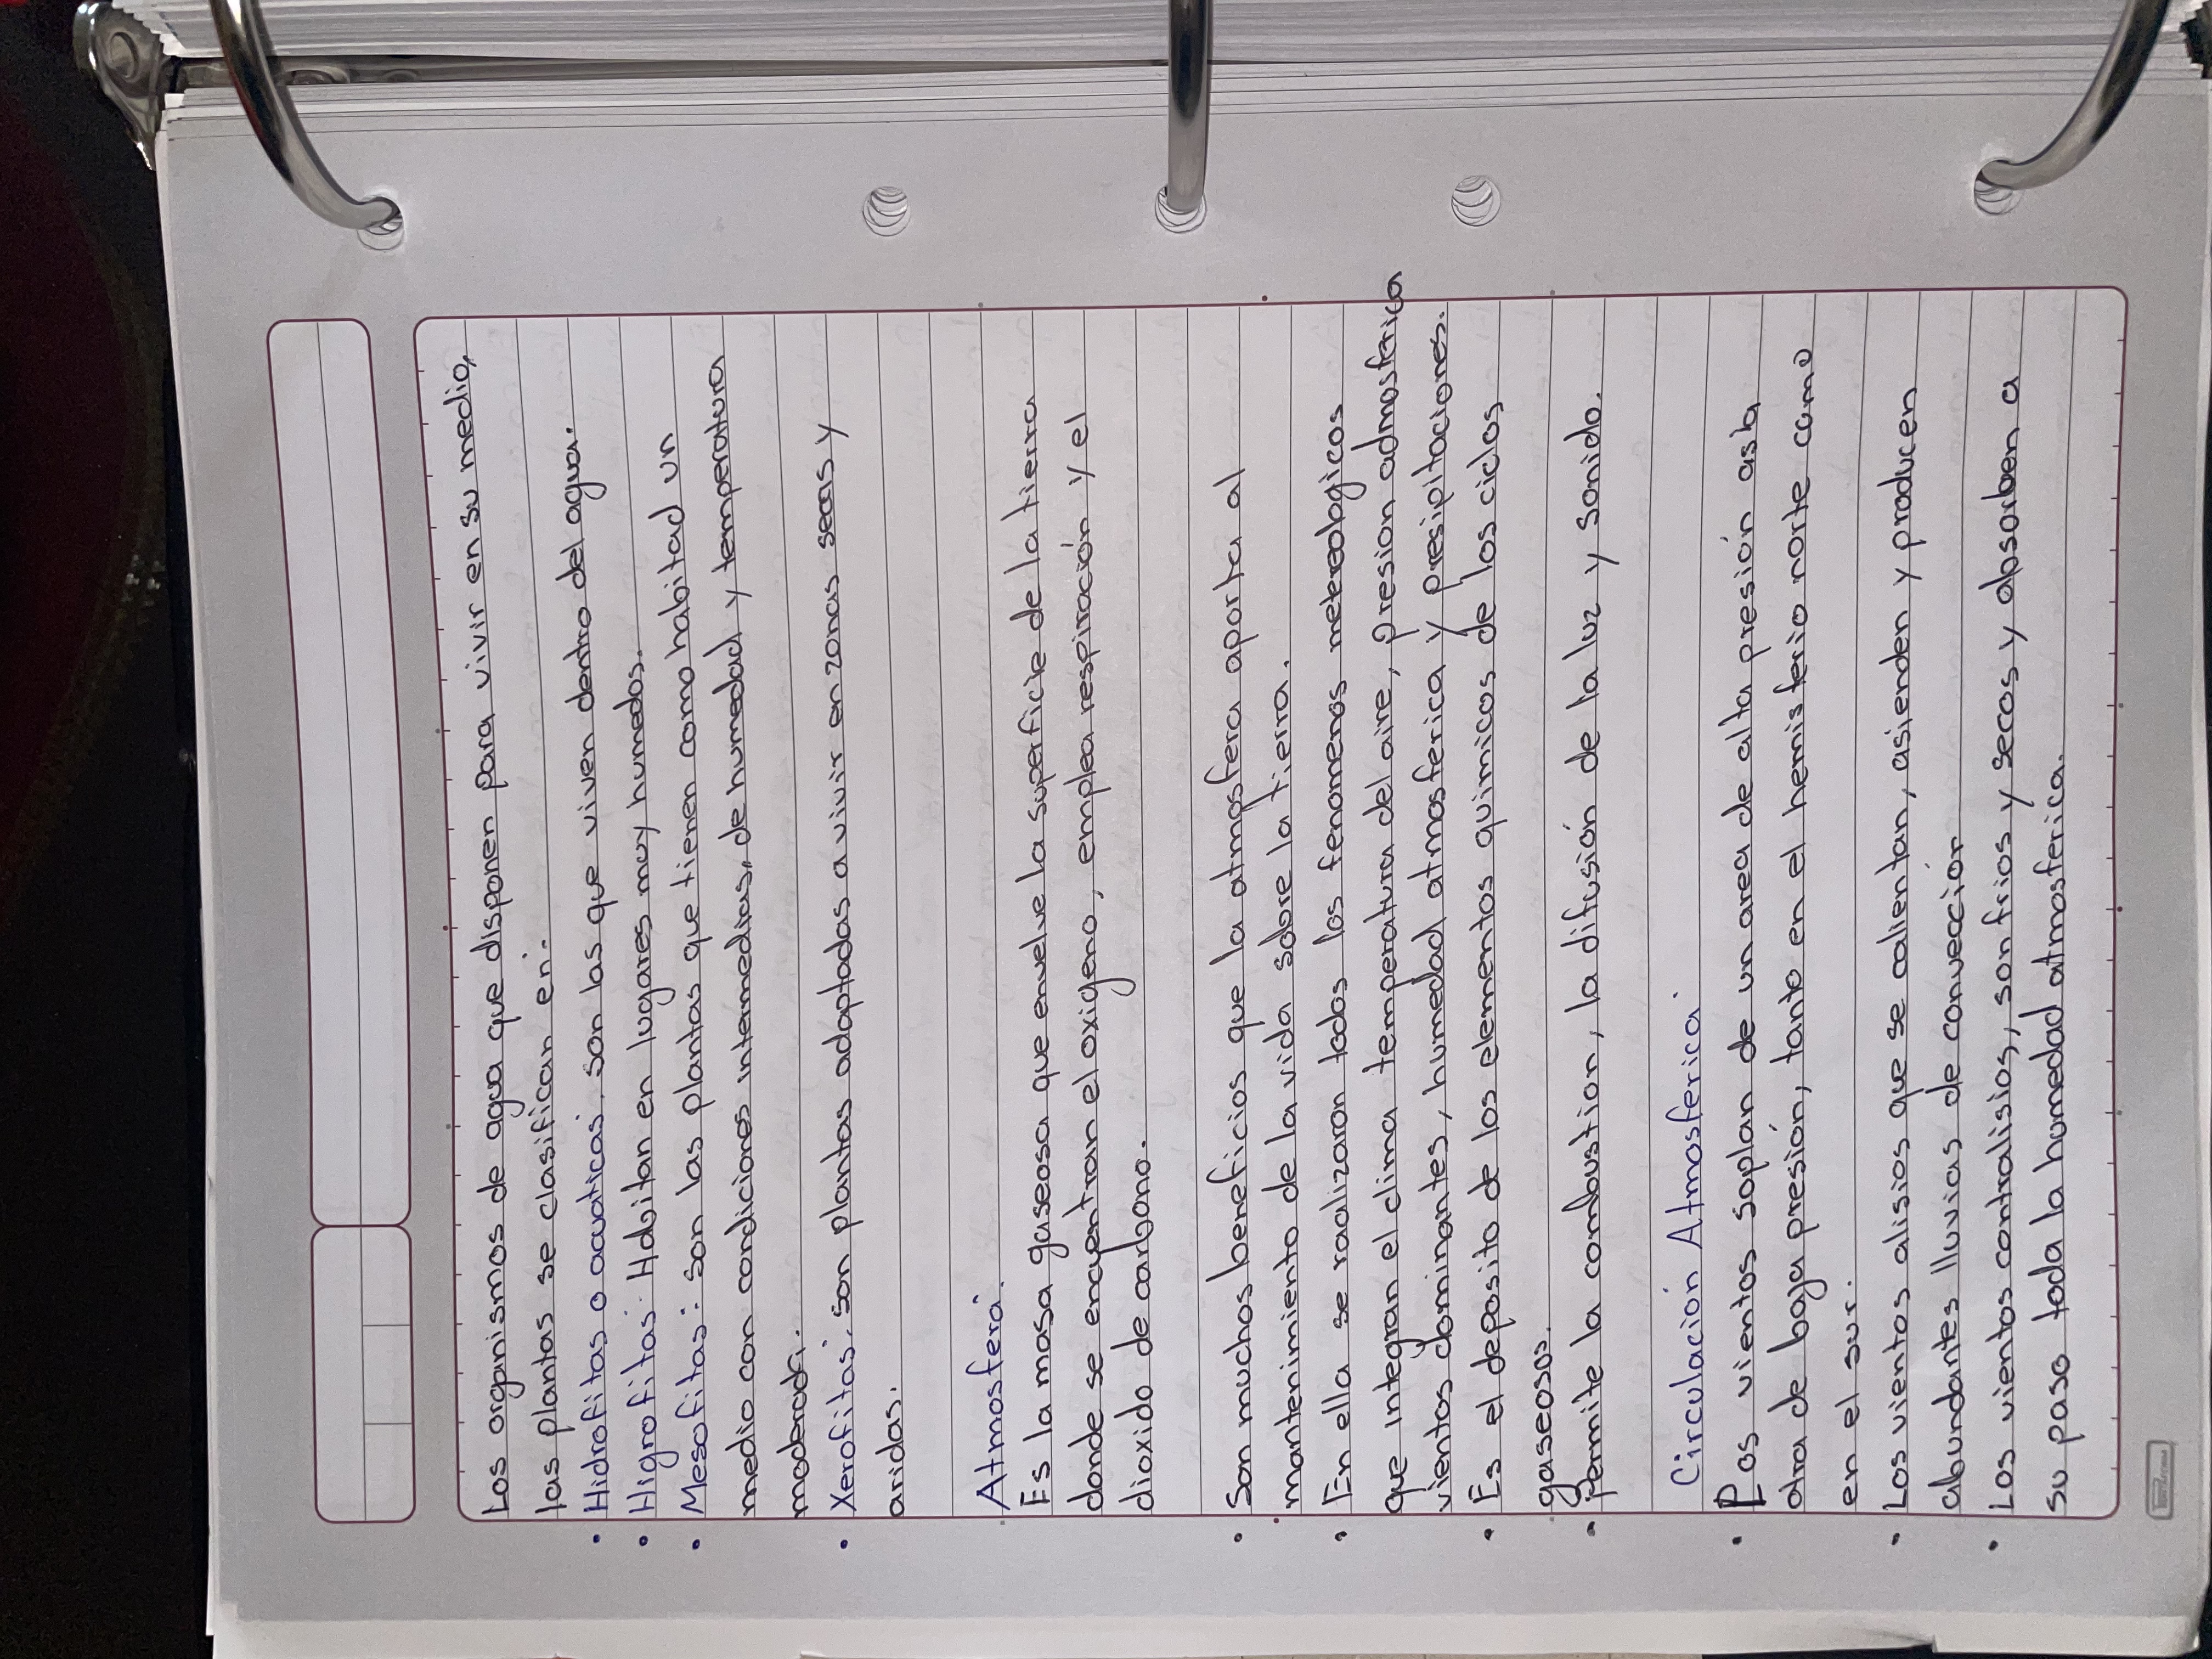 Los organismos de agua que disponen para vivir en su medio,
las plantas se clasifican en:
• Hidrofitas o acuaticas: son las que viven dentro del agua.
• Higrofitas: Habitan en lugares muy humedos.
• Mesofitas: son las plantas que tienen como habitad un
medio con condiciones intermedias, de humedad y temperatura
• Xerofitas: son plantas adaptadas a vivir en zonas secas y
aridas.
Atmosfera:
Es la masa gaseosa que envuelve la superficie de la tierra
donde se encuentran el oxigeno, emplea respiración y el
dioxido de carbono.
• Son muchos beneficios que la atmosfera aporta al
mantenimiento de la vida sobre la tierra.
• En ella se raalizaron todos los fenomenos metereologicos
que integran el clima temperatura del aire, presion admosferica
vientos dominantes, humedad atmosferica y presipitaciones.
• Es el deposito de los elementos quimicos de los ciclos
gaseosos.
• Permite la combustion, la difusión de la luz y sonido.
Circulación Atmosferica:
• Los vientos soplan de un area de alta presión asta
otra de baja presión, tanto en el hemisferio norte como
en el sur.
• Los vientos alisios que se calientan, asienden y producen
abundantes lluvias de convección
• Los vientos contralisios, son frios y secos y obsorben a
su paso toda la humedad atmosferica.